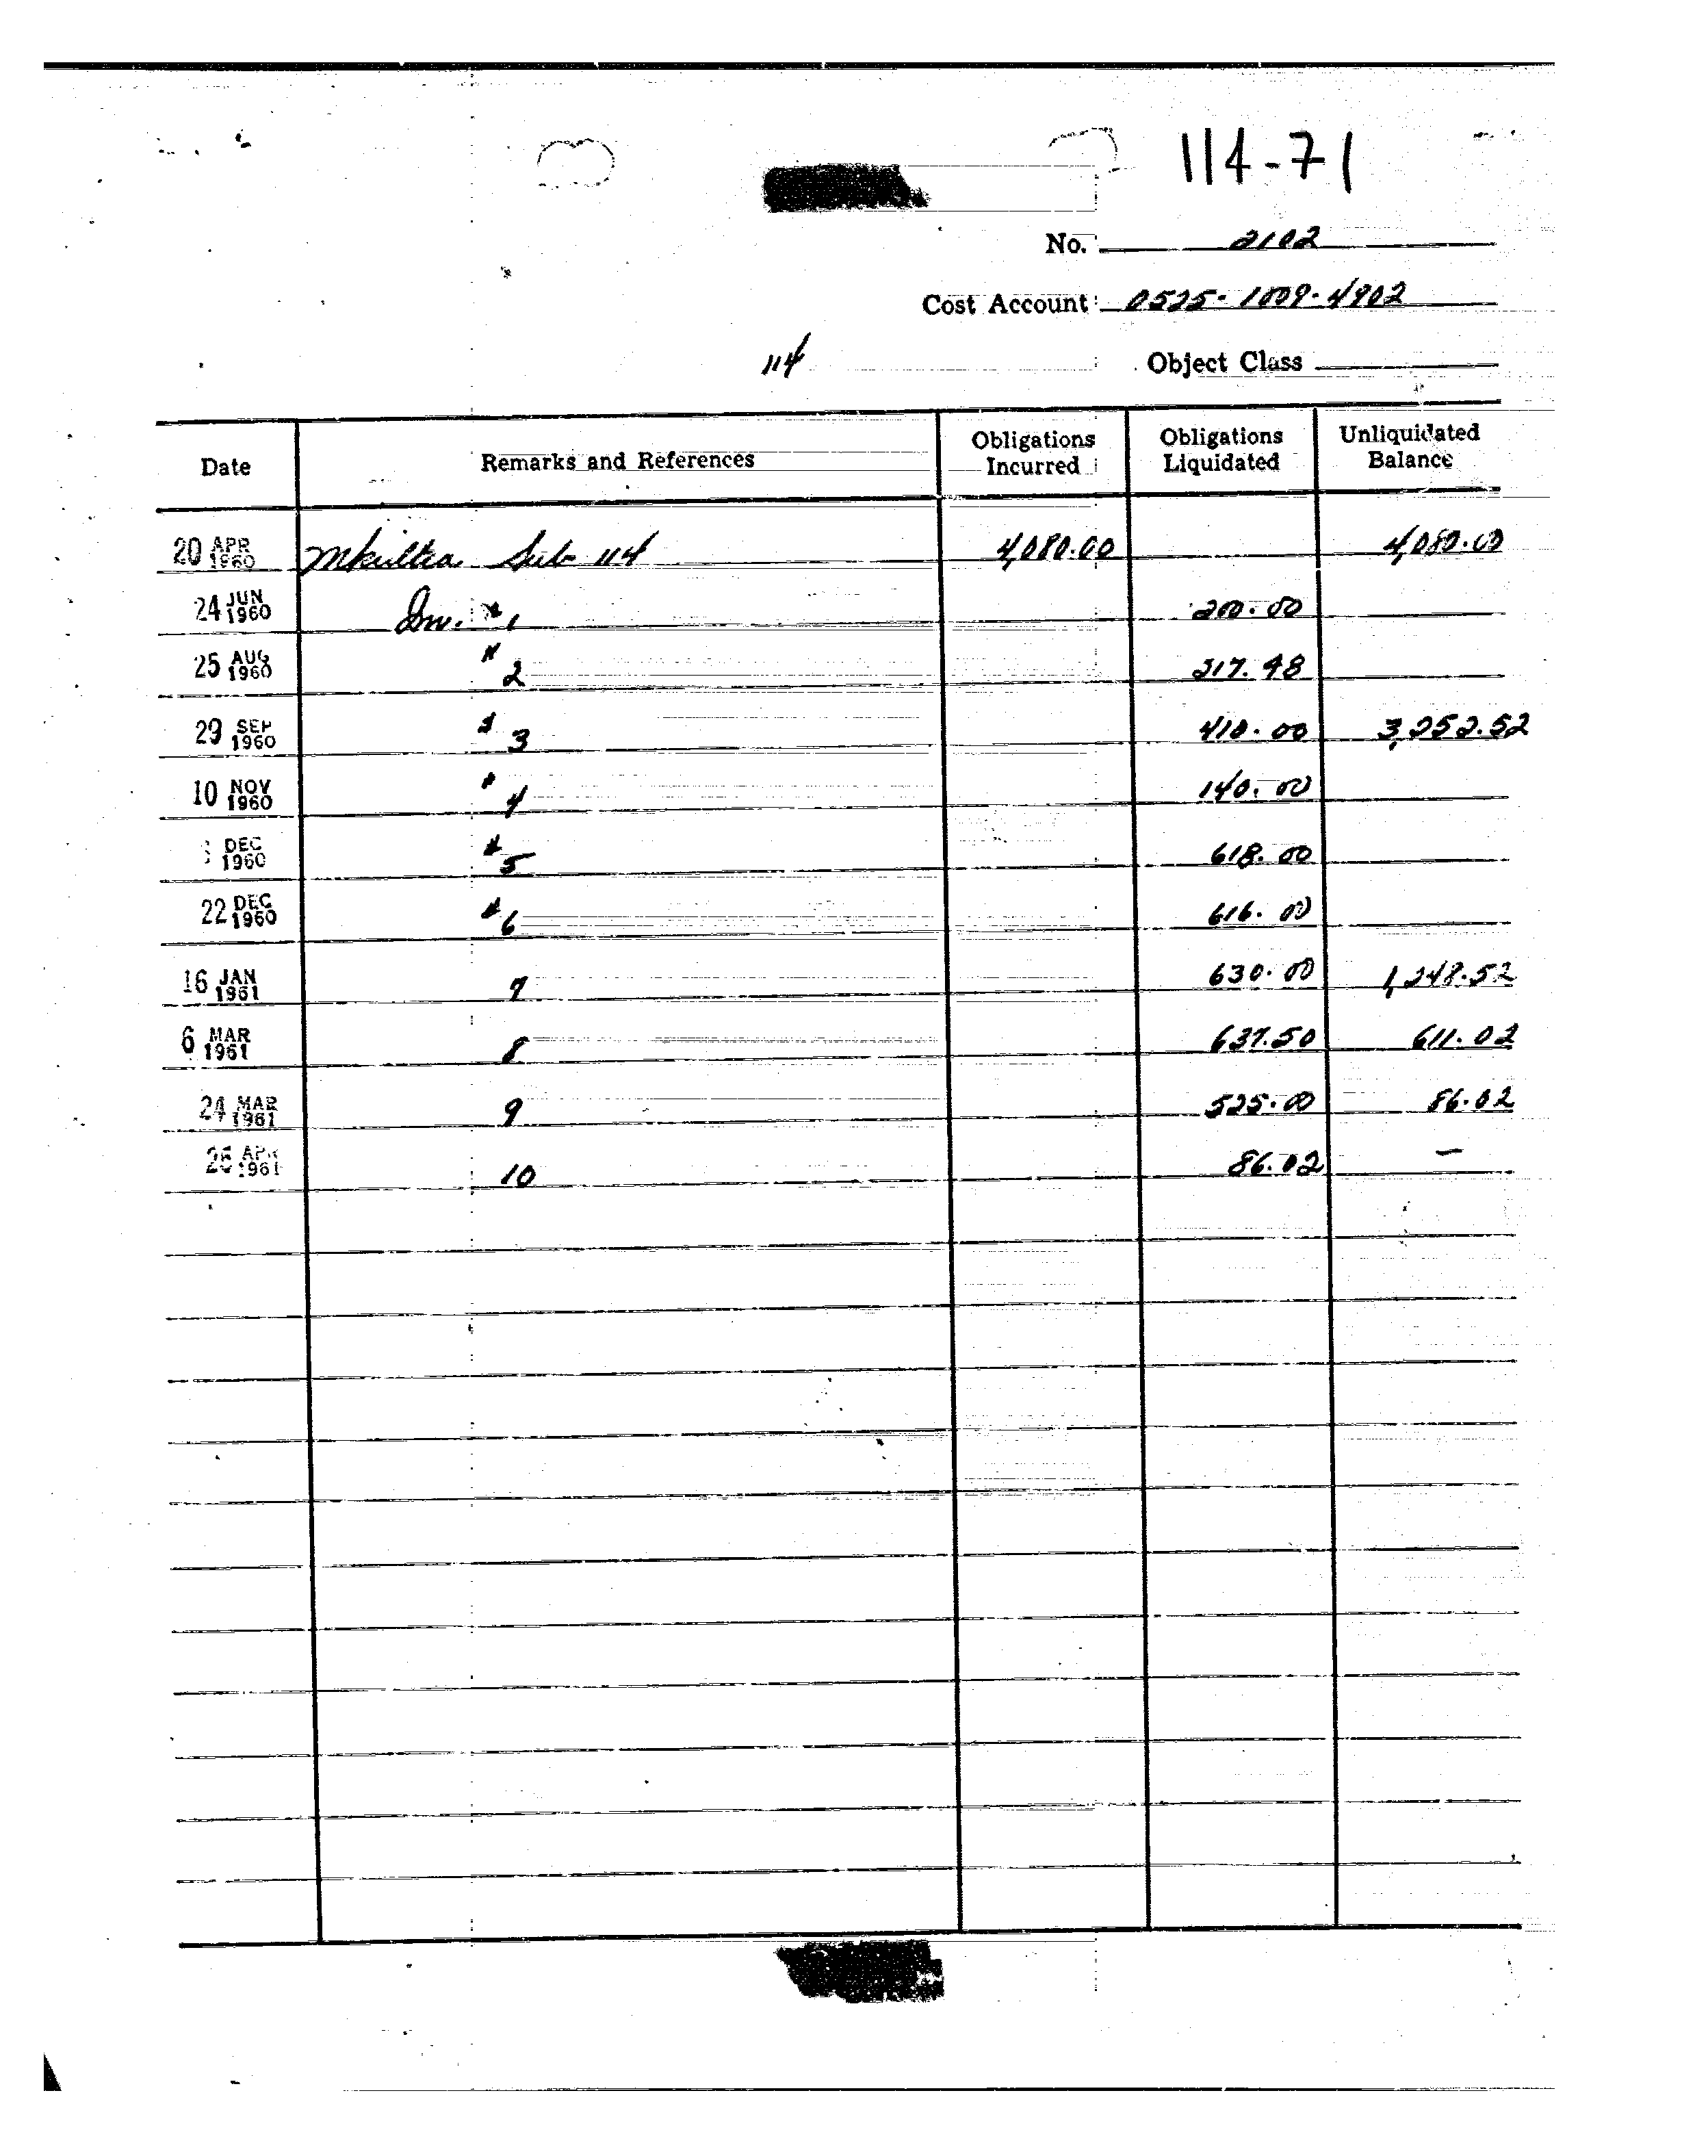 114-71
No. 2102
Cost Account 0525-1009-4902
114 Object Class
Date Remarks and References Obligations Incurred Obligations Liquidated Unliquidated Balance
20 APR 1960 Mkultra Sub 114 4,080.00 4,080.00
24 JUN 1960 Inv. #1 200.00
25 AUG 1960 #2 217.48
29 SEP 1960 #3 410.00 3,252.52
10 NOV 1960 #4 140.00
DEC 1960 #5 618.00
22 DEC 1960 #6 616.00
16 JAN 1961 7 630.00 1,248.52
6 MAR 1961 8 637.50 611.02
24 MAR 1961 9 525.00 86.02
26 APR 1961 10 86.02 —